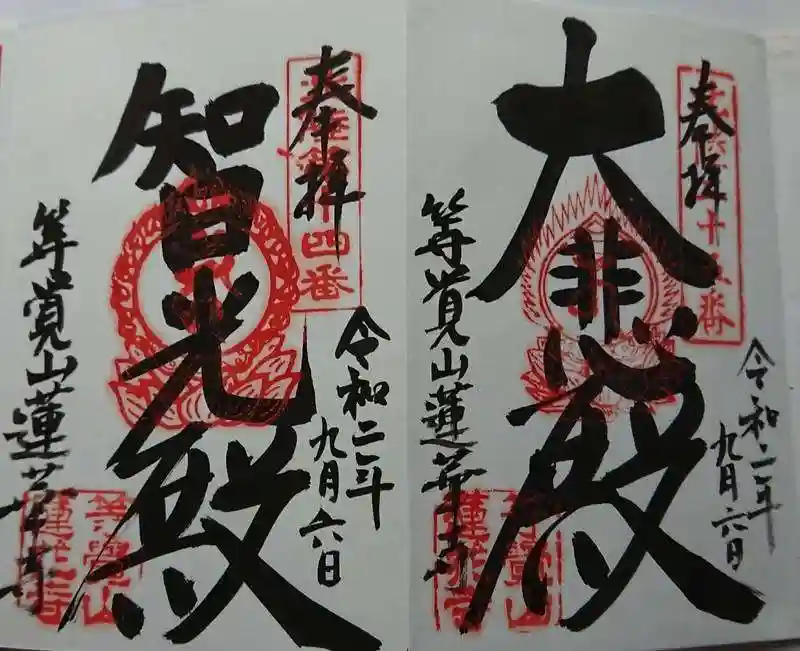 奉拝
十五番
令和二年
九月六日
大悲殿
等覚山蓮華寺
等覺山
蓮華寺
奉拝
十四番
令和二年
九月六日
智光殿
等覚山蓮華寺
等覺山
蓮華寺